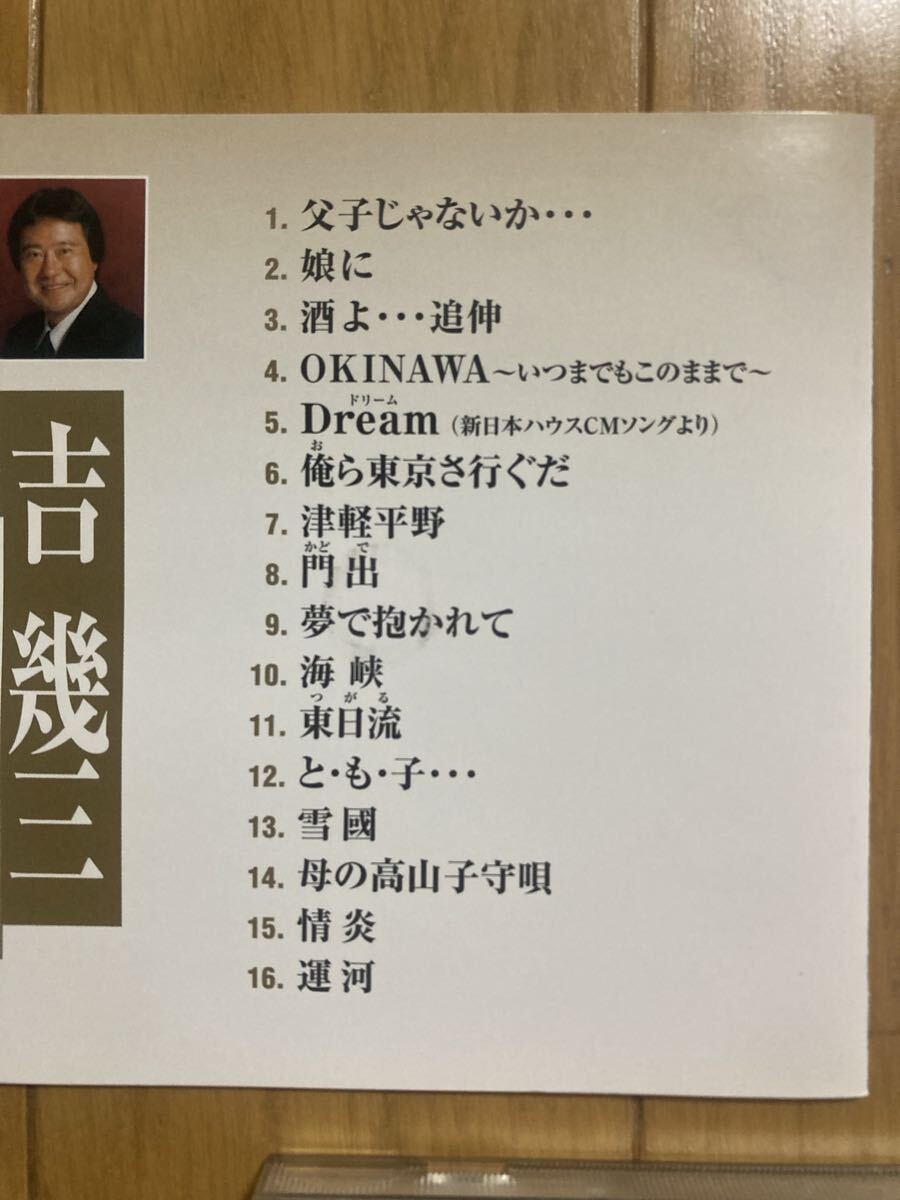 吉 幾三
1. 父子じゃないか・・・
2. 娘に
3. 酒よ・・・追伸
4. OKINAWA～いつまでもこのままで～
ドリーム
5. Dream（新日本ハウスCMソングより）
お
6. 俺ら東京さ行ぐだ
7. 津軽平野
かど で
8. 門出
9. 夢で抱かれて
10. 海峡
つがる
11. 東日流
12. と・も・子・・・
13. 雪國
14. 母の高山子守唄
15. 情炎
16. 運河